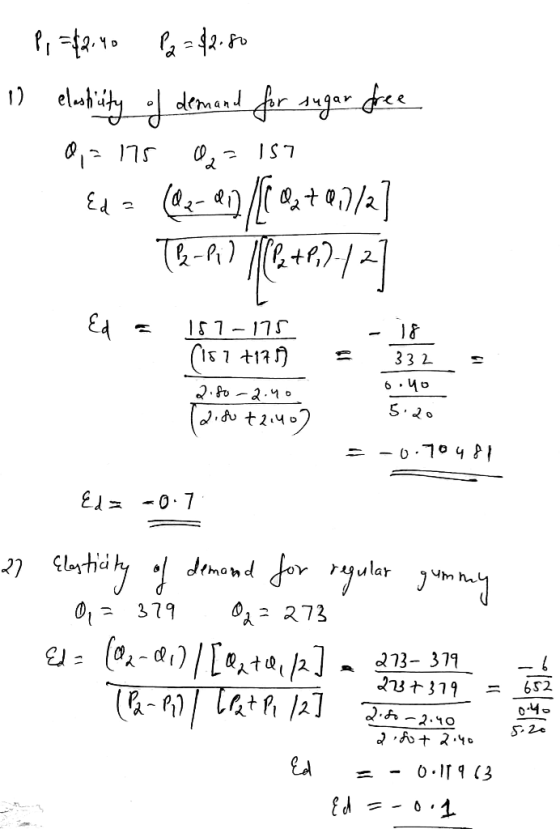 P₁ = $2.40 P₂ = $2.80
1) elasticity of demand for sugar free
Q₁ = 175 Q₂ = 157
Ed = (Q₂ - Q₁) / [(Q₂ + Q₁)/2]
(P₂ - P₁) / [(P₂ + P₁)/2]
Ed = 157 - 175 = - 18 =
(157 + 175) 332
2.80 - 2.40 0.40
(2.80 + 2.40) 5.20
= -0.70481
Ed = -0.7
2) Elasticity of demand for regular gummy
Q₁ = 379 Q₂ = 273
Ed = (Q₂ - Q₁) / [Q₂ + Q₁ /2] = 273 - 379 = - 6
(P₂ - P₁) / [P₂ + P₁ /2] 273 + 379 652
2.80 - 2.40 0.40
2.80 + 2.40 5.20
Ed = - 0.11963
Ed = - 0.1